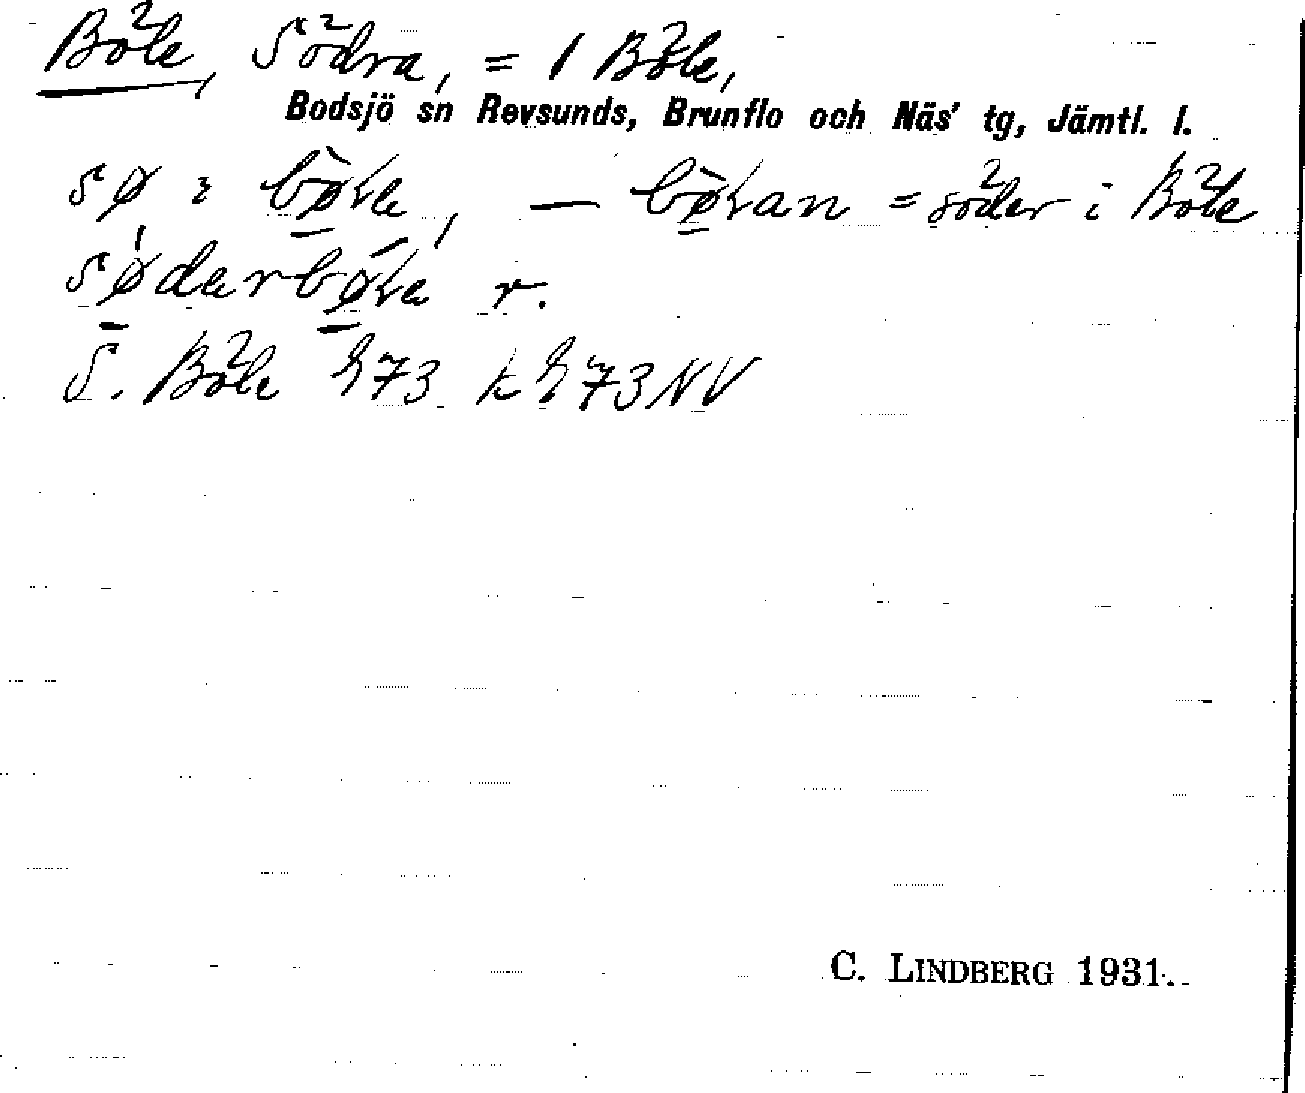 Böle, Södra, = 1 Böle,
Bodsjö sn Revsunds, Brunflo och Näs' tg, Jämtl. l.
sø i bø̀ɽe, — bø̀ɽan = söder i Böle
sødarbøɽe r.
S. Böle h73 k h73NV
C. LINDBERG 1931.